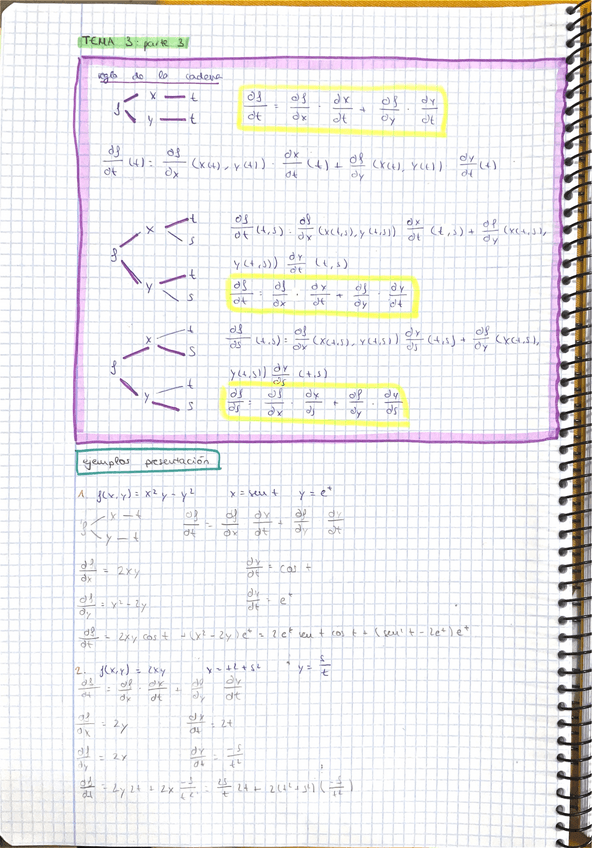 TEMA 3: parte 3
regla de la cadena
f x — t
y — t
∂f/∂t = ∂f/∂x · ∂x/∂t + ∂f/∂y · ∂y/∂t
∂f/∂t (t) = ∂f/∂x (x(t), y(t)) · ∂x/∂t (t) + ∂f/∂y (x(t), y(t)) · ∂y/∂t (t)
f x t s
y t s
∂f/∂t (t,s) = ∂f/∂x (x(t,s), y(t,s)) ∂x/∂t (t,s) + ∂f/∂y (x(t,s),
y(t,s)) ∂y/∂t (t,s)
∂f/∂t = ∂f/∂x · ∂x/∂t + ∂f/∂y · ∂y/∂t
f x t s
y t s
∂f/∂s (t,s) = ∂f/∂x (x(t,s), y(t,s)) ∂x/∂s (t,s) + ∂f/∂y (x(t,s),
y(t,s)) ∂y/∂s (t,s)
∂f/∂s = ∂f/∂x · ∂x/∂s + ∂f/∂y · ∂y/∂s
ejemplos presentación
1. f(x,y) = x² y - y² x = sen t y = e^t
f x — t
y — t
∂f/∂t = ∂f/∂x ∂x/∂t + ∂f/∂y ∂y/∂t
∂f/∂x = 2xy ∂x/∂t = cos t
∂f/∂y = x² - 2y ∂y/∂t = e^t
∂f/∂t = 2xy cos t + (x² - 2y) e^t = 2e^t sen t cos t + (sen² t - 2e^t) e^t
2. f(x,y) = 2xy x = t² + s² y = s/t
∂f/∂t = ∂f/∂x · ∂x/∂t + ∂f/∂y ∂y/∂t
∂f/∂x = 2y ∂x/∂t = 2t
∂f/∂y = 2x ∂y/∂t = -s/t²
∂f/∂t = 2y 2t + 2x -s/t² = 2s/t 2t + 2(t² + s²) (-s/t²)